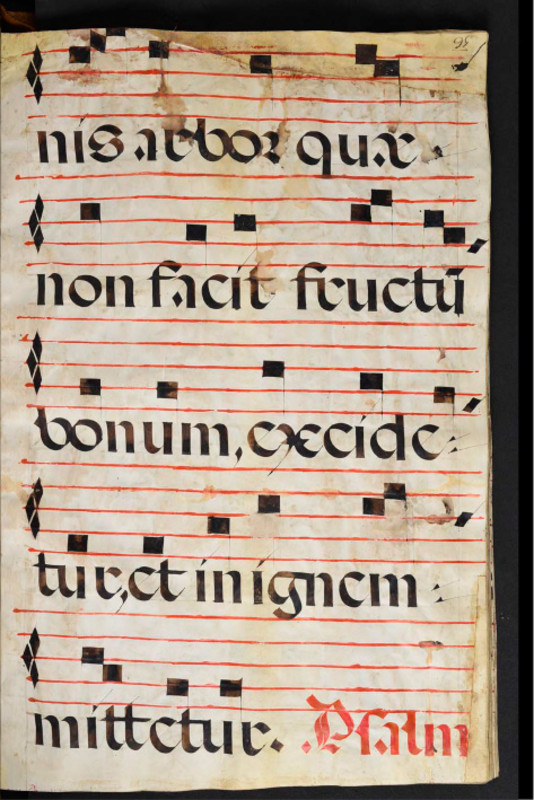 nis arbor quæ
non facit fructū
bonum, excide-
tur, et in ignem
mittetur. Psalm